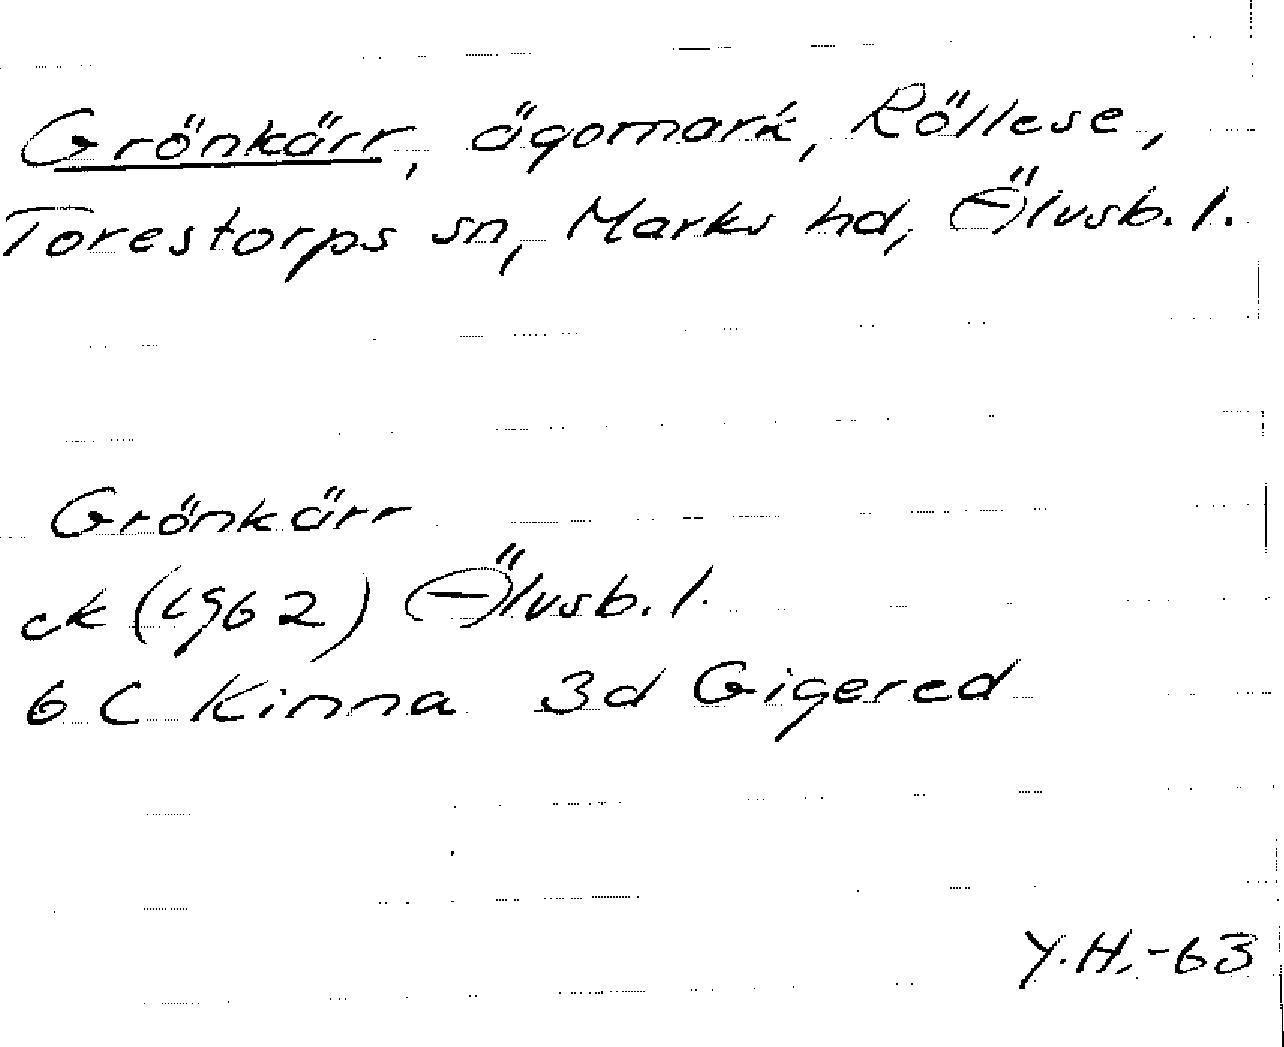 Grönkärr, ägomark, Röllese,
Torestorps sn, Marks hd, Älvsb. l.
Grönkärr
ek (1962) Älvsb. l.
6 C Kinna 3d Gigered
Y.H.-63